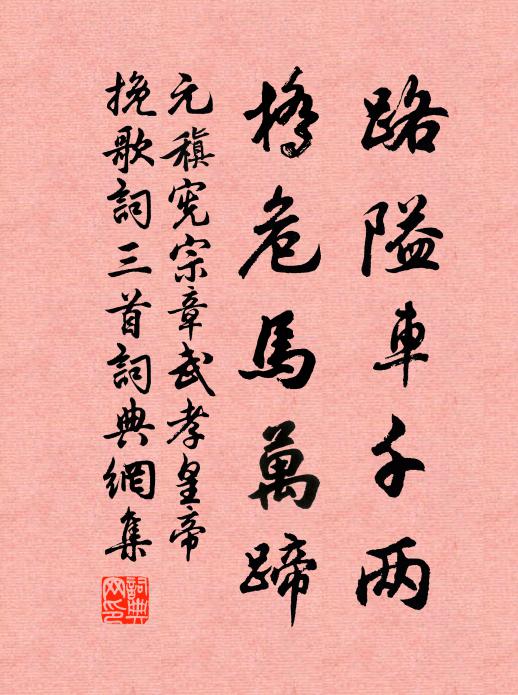 路隘車千两
橋危馬萬蹄
元稹憲宗章武孝皇帝
挽歌詞三首詞典網集
詞典網印